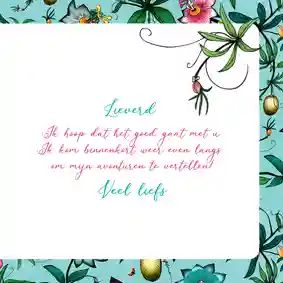 Lieverd
Ik hoop dat het goed gaat met u
Ik kom binnenkort weer even langs
om mijn avonturen te vertellen!
Veel liefs